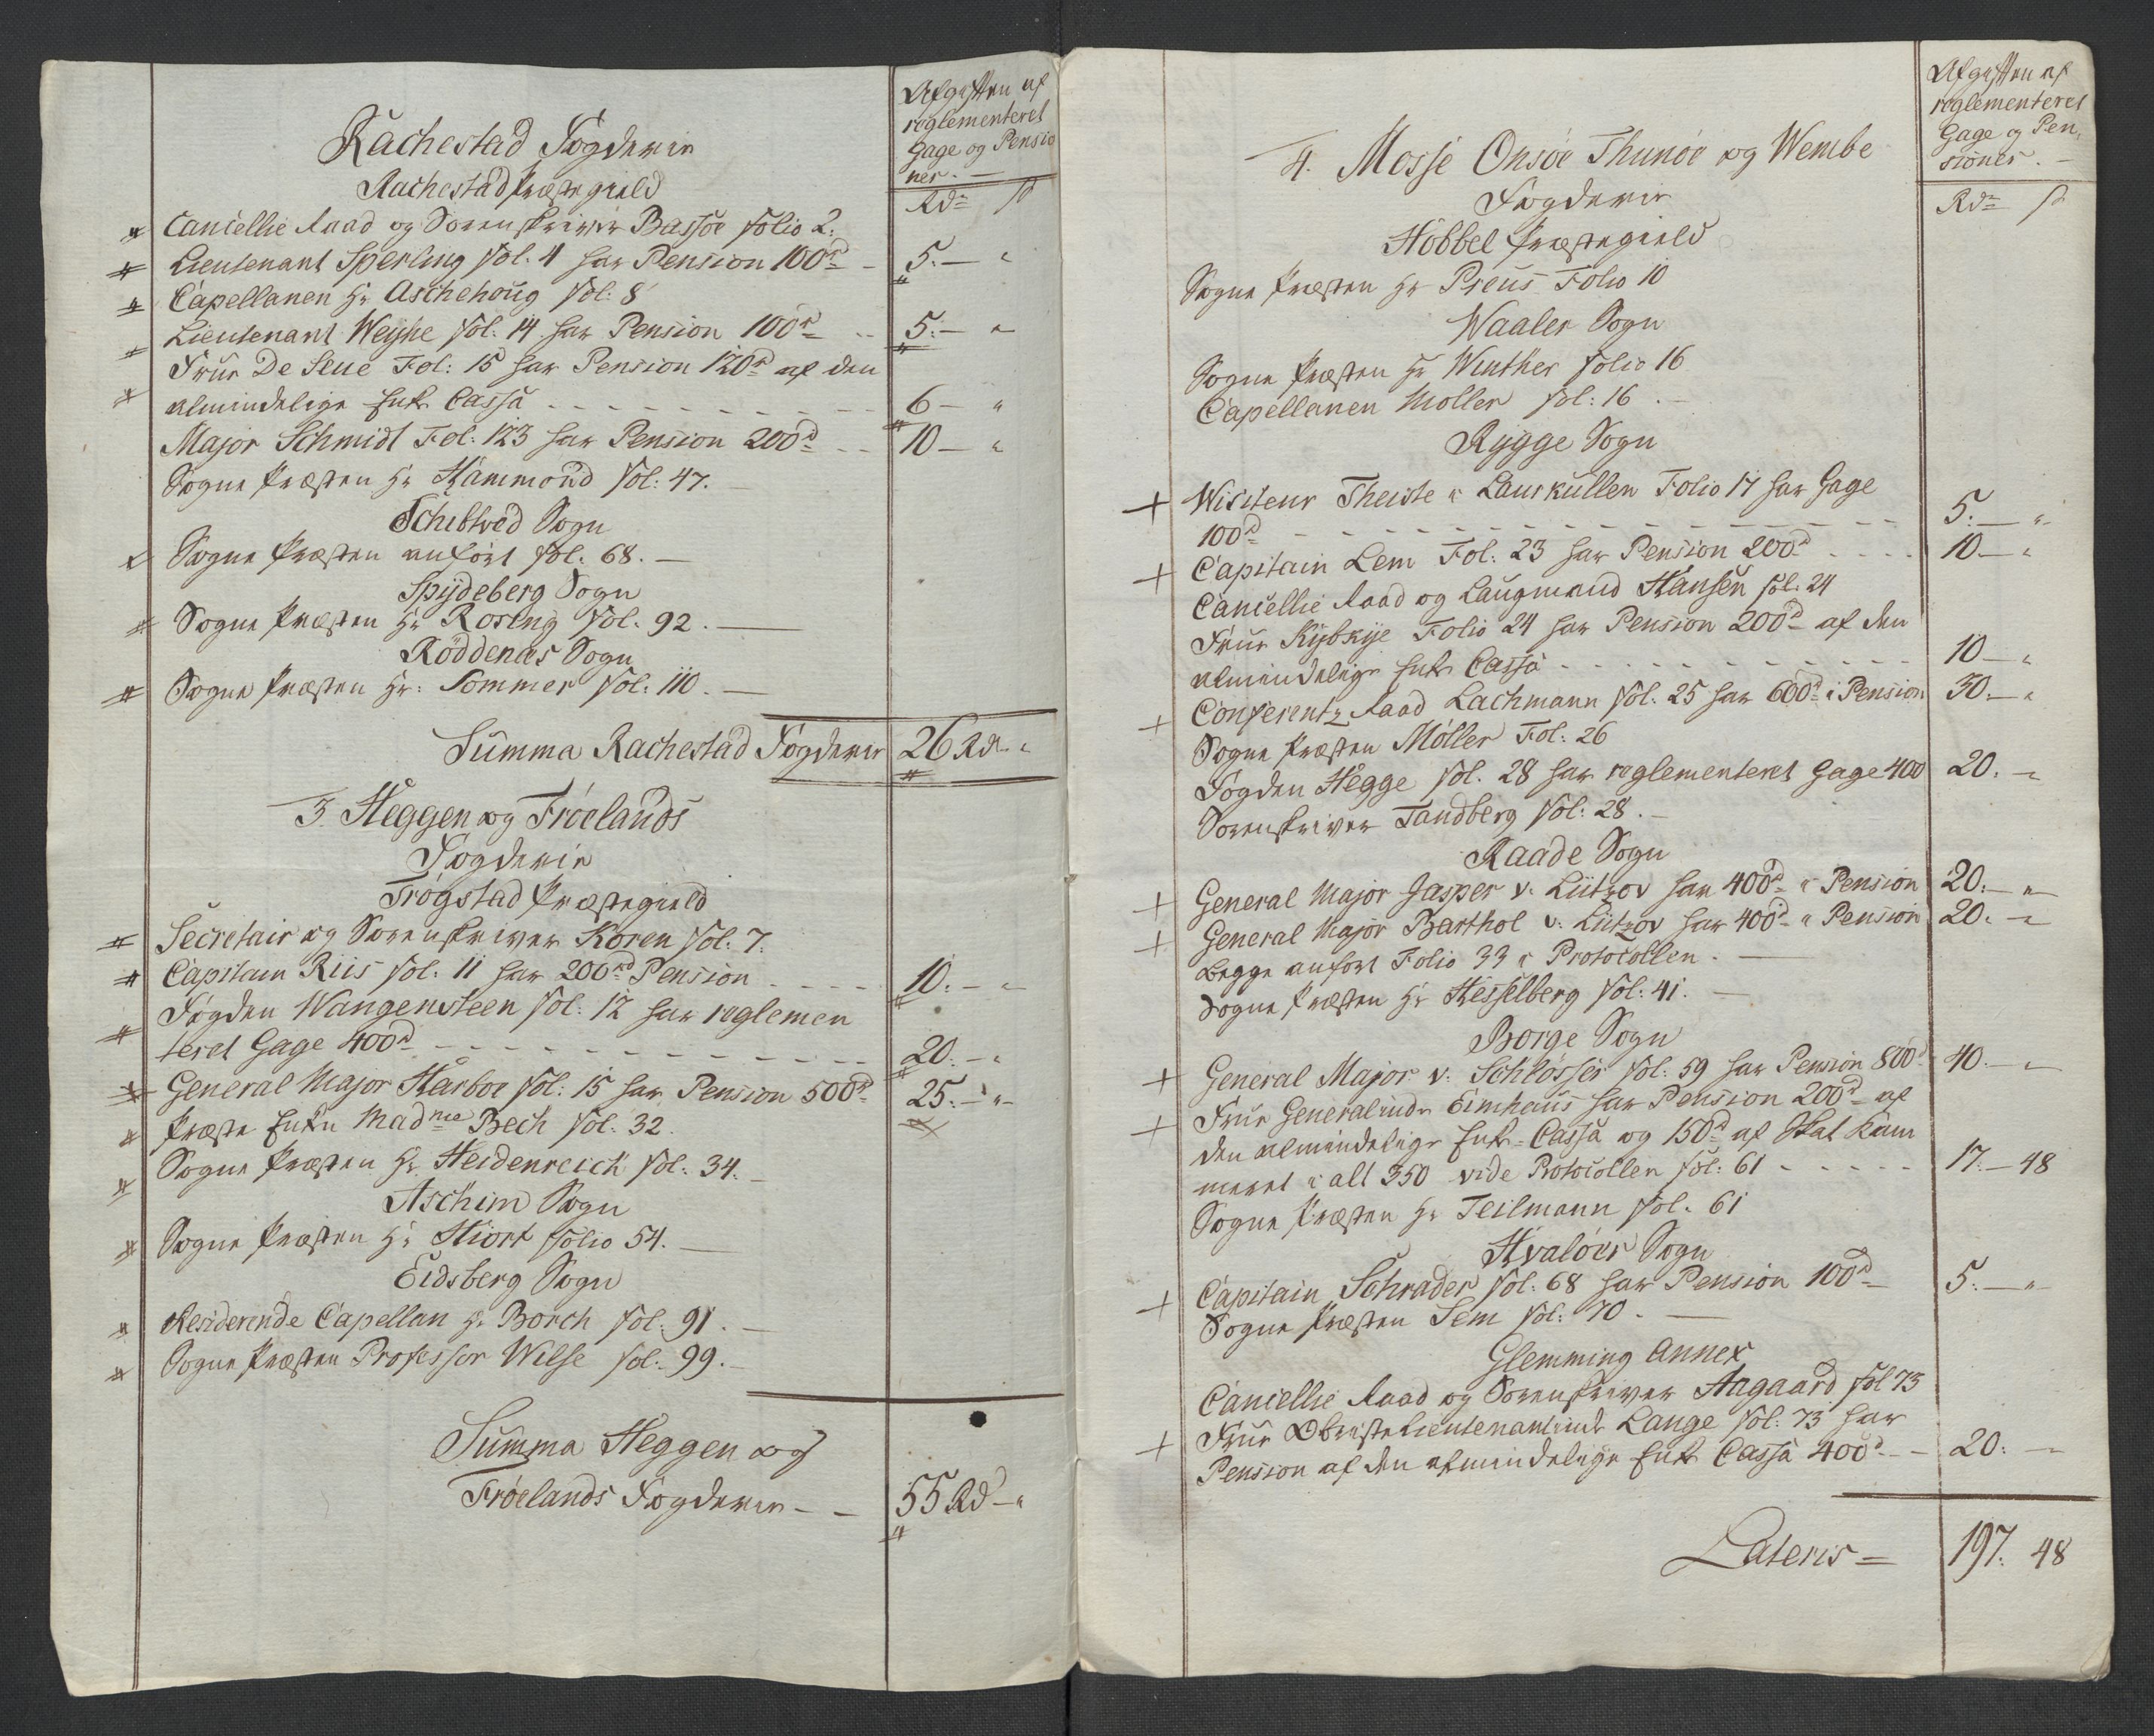 Afgiften af
reglementeret
Gage og Pensio
ner. —
Rdr ß
Rachestad Fogderie
Rachestad Præstegield
Cancellie Raad og Sorenskriver Bassøe folio 2.
Lieutenant Sperling fol. 4 har Pension 100rd — 5. — "
Capellanen Hr Aschehoug fol: 8
Lieutenant Weyhe fol. 14 har Pension 100rd — 5. — "
Frue De Seue Fol: 15 har Pension 120rd af den
almindelige Enke Cassa — 6 — "
Major Schmidt Fol: 123 har Pension 200rd — 10 — "
Sogne Præsten Hr Hammond fol: 47.
Schibtved Sogn
Sogne Præsten anført fol. 68. —
Spydeberg Sogn
Sogne Præsten Hr Rosing fol. 92. —
Röddenæs Sogn
Sogne Præsten Hr: Sommer fol: 110. —
Summa Rachestad Fogderie 26 Rd. "
3. Heggen og Frøelands
Fogderie
Trøgstad Præstegield
Secretair og Sorenskriver Koren fol: 7.
Capitain Riis fol. 11 har 200rd Pension — 10. — "
Fogden Wangensteen fol: 12 har reglemen
teret Gage 400rd — 20. — "
General Major Harboe fol: 15 har Pension 500rd 25. — "
Præste Enken Madme Bech fol. 32.
Sogne Præsten Hr. Heidenreich fol. 34. —
Aschim Sogn
Sogne Præsten Hr Hiort folio 54. —
Eidsberg Sogn
Residerende Capellan Hr. Borch fol. 91. —
Sogne Præsten Professor Wilse fol. 99. —
Summa Heggen og
Frøelands Fogderie — — 55 Rd — "
Afgiften af
reglementeret
Gage og Pen,
sioner. —
Rdr ß
4. Mosse Onsøe Thunøe og Wembe
Fogderie
Hobbel Præstegield
Sogne Præsten Hr Preus Folio 10
Waaler Sogn
Sogne Præsten Hr Winther folio 16
Capellanen Moller fol: 16. —
Rygge Sogn
Wisiteur Theiste i Laurkullen Folio 17 har Gage
100rd — 5. — "
Capitain Lem Fol: 23 har Pension 200rd — 10 — "
Cancellie Raad og Laugmand Hansen fol. 24
Frue Rybskye Folio 24 har Pension 200rd af den
almindelige Enke Cassa — 10 — "
Conferentz Raad Lachmann fol. 25 har 600rd i Pension 30. — "
Sogne Præsten Möller Fol: 26
Fogden Hegge fol. 28 har reglementeret Gage 400 20. — "
Sorenskriver Tandberg fol: 28. —
Raade Sogn
General Major Jasper v. Lützov har 400rd i Pension 20. — "
General Major Barthol v. Lützov har 400rd i Pension 20. — "
begge anført Folio 33 i Protocollen. —
Sogne Præsten Hr Hesselberg fol: 41. —
Borge Sogn
General Major v. Schlösser fol. 59 har Pension 800rd 40. — "
Frue Generalinde Eimhaus har Pension 200rd af
den almindelige Enke-Cassa og 150rd af Skat kam
meret i alt 350 vide Protocollen fol: 61 — 17. — 48
Sogne Præsten Hr Teilmann fol. 61
Hvaløer Sogn
Capitain Schrader fol. 68 har Pension 100rd — 5. — "
Sogne Præsten Sem fol: 70. —
Glemming Annex
Cancellie Raad og Sorenskriver Aagaard fol 73
Frue Obristelieutenantinde Lange fol: 73 har
Pension af den almindelige Enke Cassa 400rd — 20. — "
Lateris = 197. 48